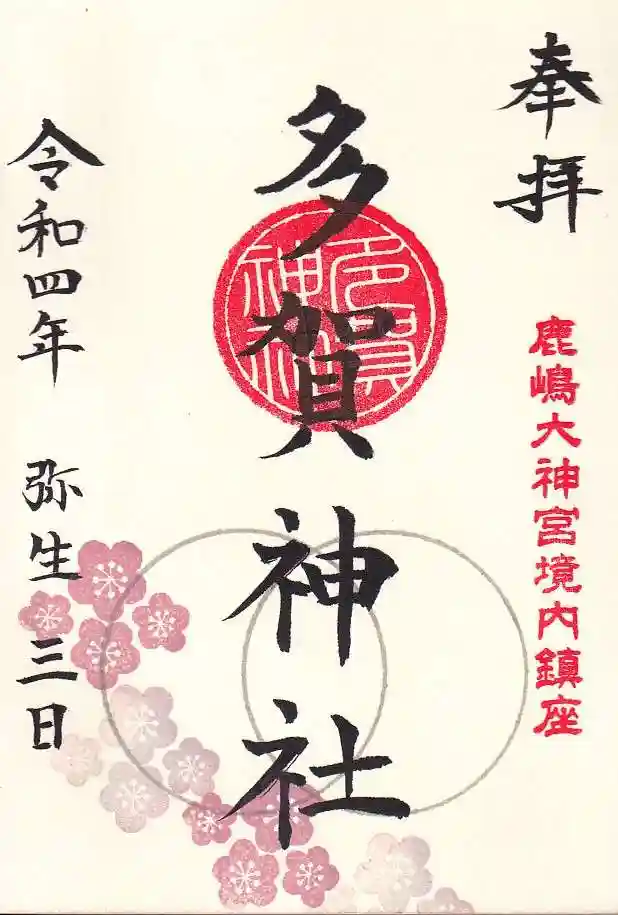 奉拝
鹿嶋大神宮境内鎮座
多賀神社
多賀神社
令和四年 弥生 三日